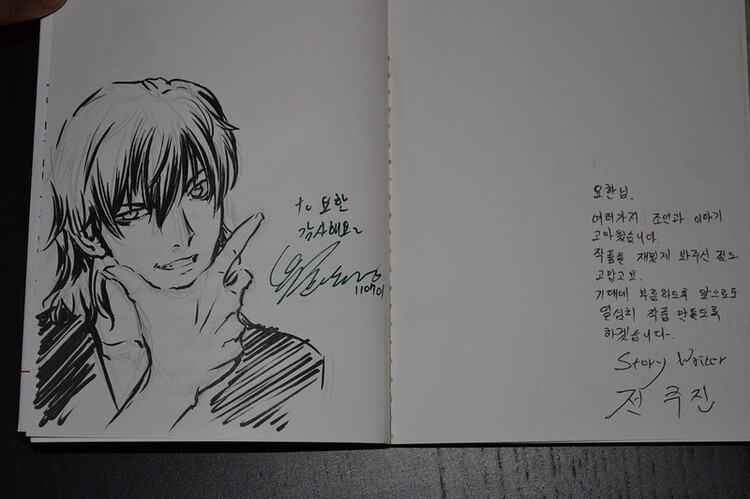 to 요한
감사해요~
110701
요한님.
여러가지 조언과 이야기
고마웠습니다.
작품을 재밌게 봐주신 점도
고맙고요.
기대에 부응하도록 앞으로도
열심히 작품 만들도록
하겠습니다.
Story Writer
전 주 진